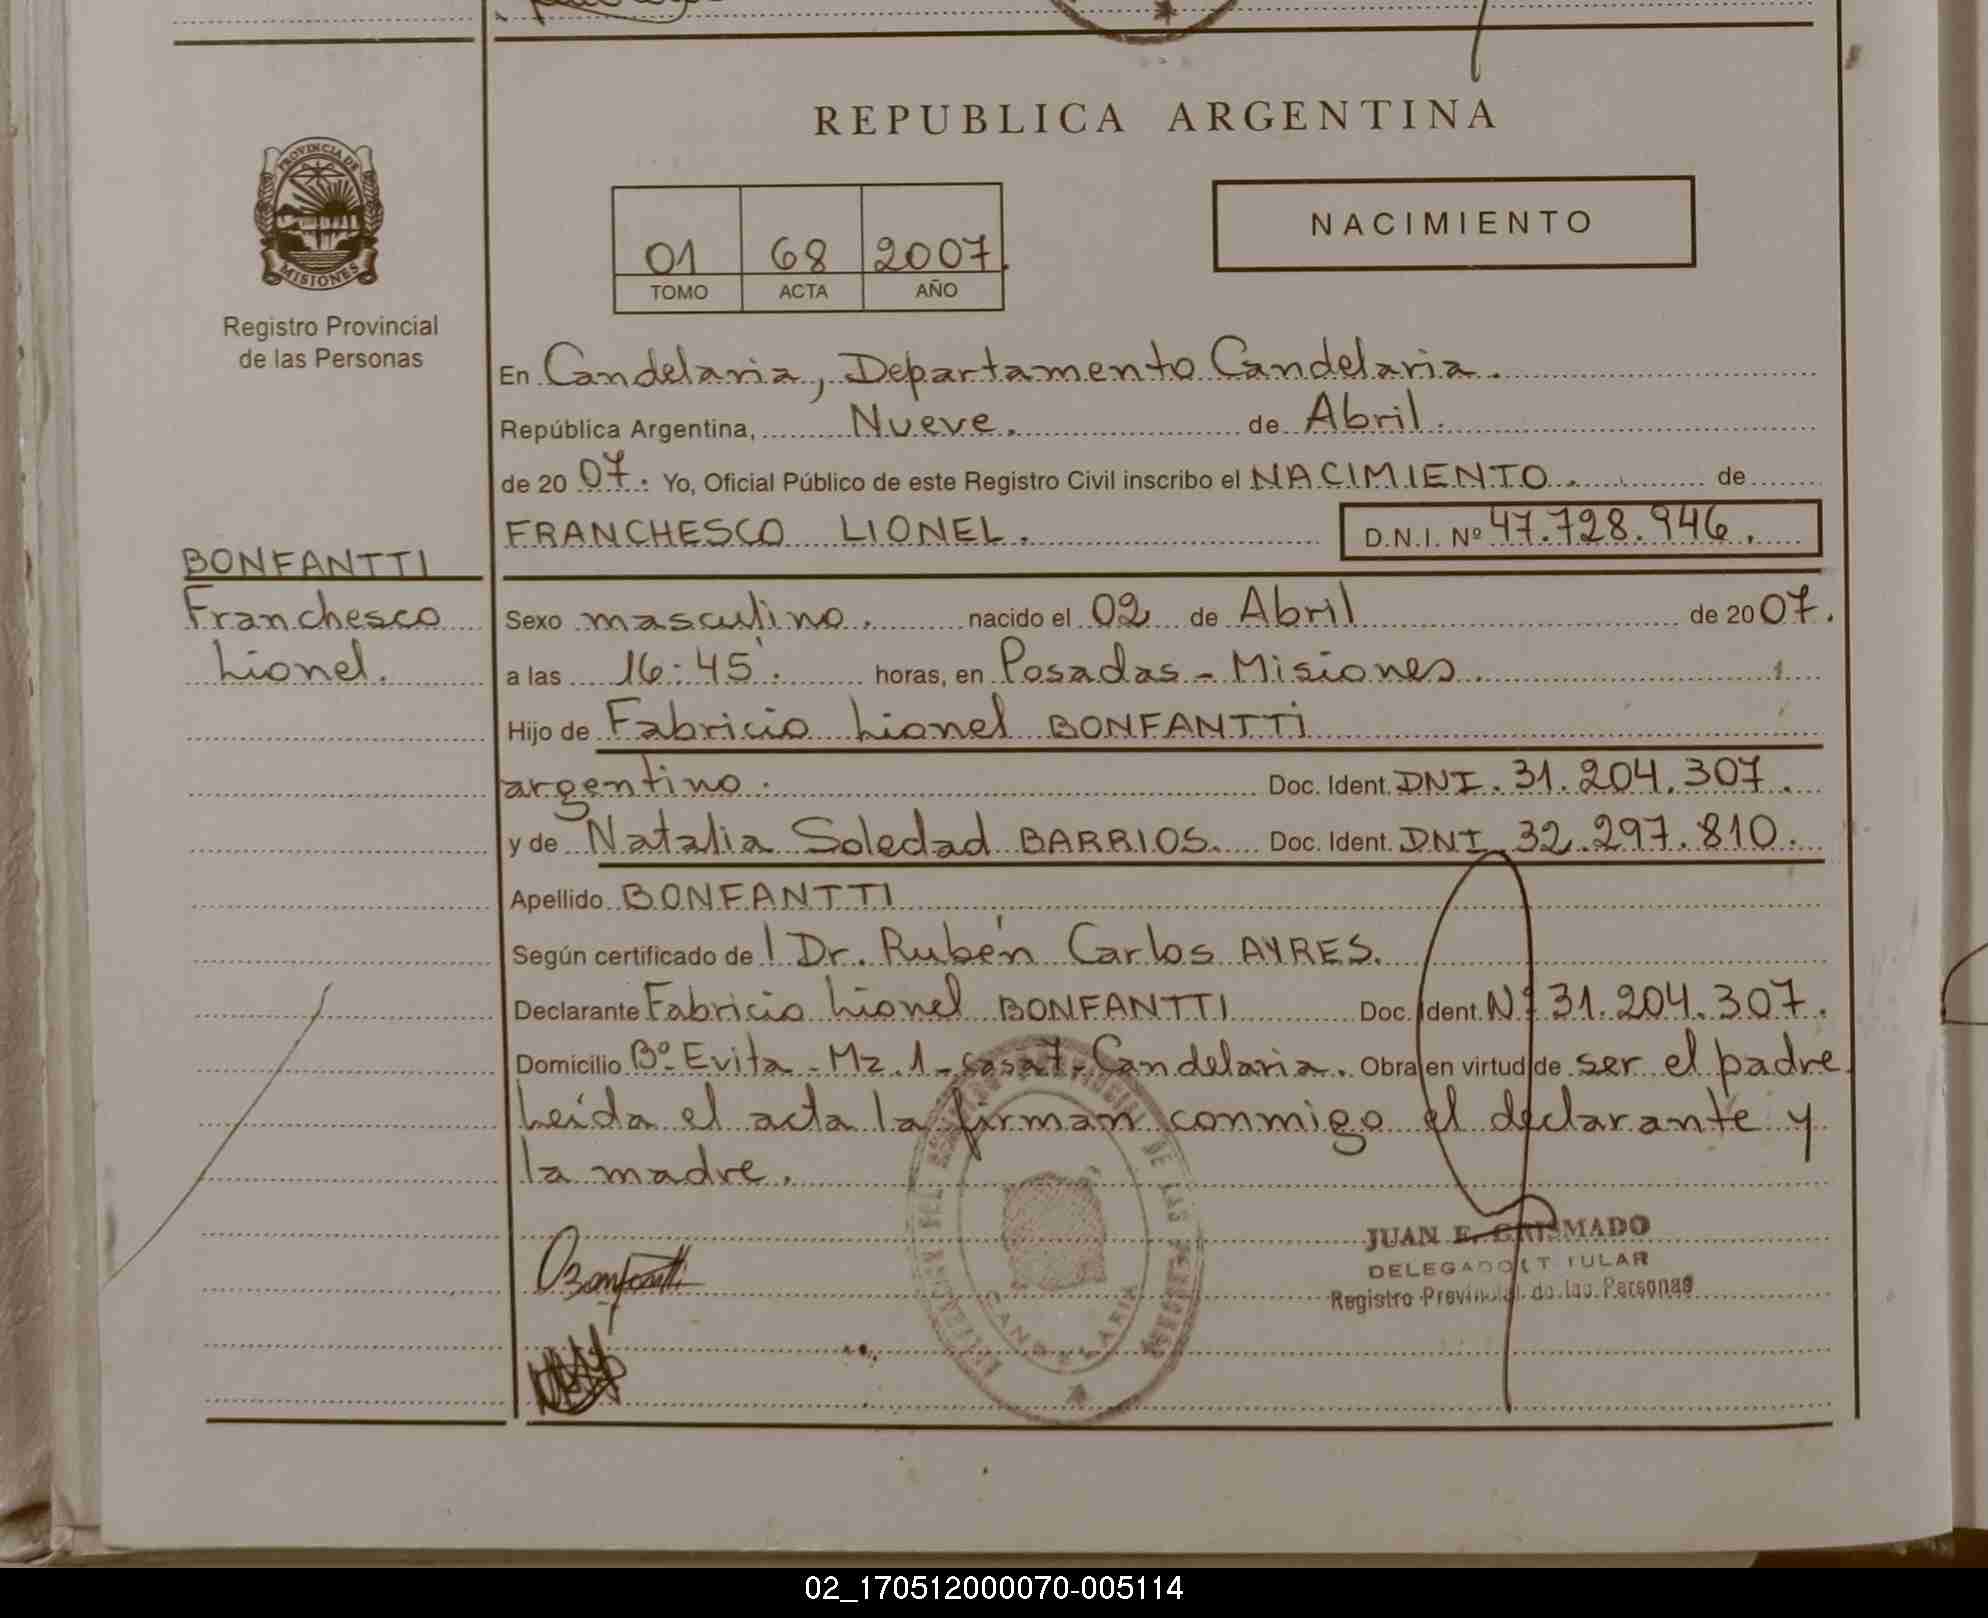 REPUBLICA ARGENTINA
PROVINCIA DE
MISIONES
Registro Provincial
de las Personas
NACIMIENTO
01 68 2007.
TOMO ACTA AÑO
En Candelaria, Departamento Candelaria.
República Argentina, Nueve. de Abril.
de 2007. Yo, Oficial Público de este Registro Civil inscribo el NACIMIENTO. de
FRANCHESCO LIONEL. D.N.I. Nº 47.728.946.
BONFANTTI
Franchesco
Lionel.
Sexo masculino. nacido el 02 de Abril de 2007.
a las 16:45'. horas, en Posadas - Misiones.
Hijo de Fabricio Lionel BONFANTTI
argentino. Doc. Ident. DNI. 31.204.307.
y de Natalia Soledad BARRIOS. Doc. Ident. DNI 32.297.810.
Apellido BONFANTTI
Según certificado de ! Dr. Rubén Carlos AYRES.
Declarante Fabricio Lionel BONFANTTI Doc. Ident. Nº 31.204.307.
Domicilio Bº Evita - Mz. 1 - casa 7 - Candelaria. Obra en virtud de ser el padre
Leída el acta la firman conmigo el declarante y
la madre.
Bonfantti
JUAN E. GRISMADO
DELEGADO TITULAR
Registro Provincial de las Personas
CANDELARIA
02_170512000070-005114